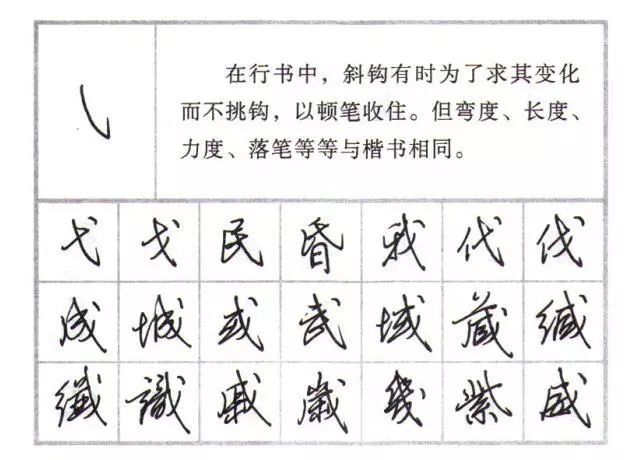 在行书中，斜钩有时为了求其变化
而不挑钩，以顿笔收住。但弯度、长度、
力度、落笔等等与楷书相同。
弋 戈 民 昏 我 代 伐
成 城 或 武 域 藏 缄
纖 識 戚 歲 幾 紫 威